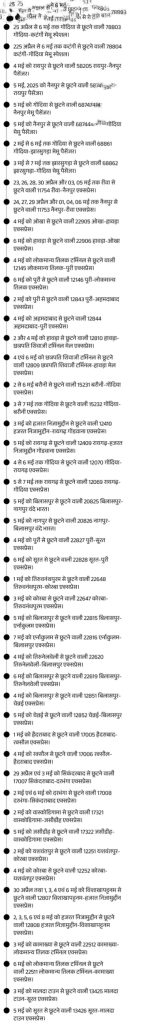 25 अप्रैल से 6 मई तक गोंदिया से छूटने वाली 78803
गोंदिया-कटंगी मेमू स्पेशल।
225 अप्रैल से 6 मई तक कटंगी से छूटने वाली 78804
कटंगी-गोंदिया मेमू स्पेशल।
4 मई को रायपुर से छूटने वाली 58205 रायपुर-नैनपुर
पैसेंजर।
5 मई, 2025 को नैनपुर से छूटने वाली
रायपुर पैसेंजर।
3 मई को गोंदिया से छूटने वाली
नैनपुर मेमू पैसेंजर।
5 मई को नैनपुर से छूटने वाली
मेमू पैसेंजर।
2 मई से 6 मई तक गोंदिया से छूटने वाली 68861
गोंदिया-झारसुगड़ा मेमू पैसेंजर।
3 मई से 7 मई तक झारसुगड़ा से छूटने वाली 68862
झारसुगड़ा-गोंदिया मेमू पैसेंजर।
23, 26, 28, 30 अप्रैल और 03, 05 मई तक रीवा से
छूटने वाली 11754 रीवा-नैनपुर एक्सप्रेस।
24, 27, 29 अप्रैल और 01, 04, 06 मई तक नैनपुर से
छूटने वाली 11753 नैनपुर-रीवा एक्सप्रेस।
4 मई को ओखा से छूटने वाली 22905 ओखा-हावड़ा
एक्सप्रेस।
6 मई को हावड़ा से छूटने वाली 22906 हावड़ा-ओखा
एक्सप्रेस।
4 मई को लोकमान्य तिलक टर्मिनस से छूटने वाली
12145 लोकमान्य तिलक-पुरी एक्सप्रेस।
6 मई को पुरी से छूटने वाली 12146 पुरी-लोकमान्य
तिलक एक्सप्रेस।
2 मई को पुरी से छूटने वाली 12843 पुरी-अहमदाबाद
एक्सप्रेस।
4 मई को अहमदाबाद से छूटने वाली 12844
अहमदाबाद-पुरी एक्सप्रेस।
2 और 4 मई को हावड़ा से छूटने वाली 12810 हावड़ा-
छत्रपति शिवाजी टर्मिनस मेल एक्सप्रेस।
4 एवं 6 मई को छत्रपति शिवाजी टर्मिनस से छूटने
वाली 12809 छत्रपति शिवाजी टर्मिनस-हावड़ा मेल
एक्सप्रेस।
2 से 6 मई बरौनी से छूटने वाली 15231 बरौनी-गोंदिया
एक्सप्रेस।
3 से 7 मई तक गोंदिया से छूटने वाली 15232 गोंदिया-
बरौनी एक्सप्रेस।
3 मई को हजरत निजामुद्दीन से छूटने वाली 12410
हजरत निजामुद्दीन-रायगढ़ गोंडवाना एक्सप्रेस।
5 मई को रायगढ़ से छूटने वाली 12409 रायगढ़-हजरत
निजामुद्दीन गोंडवाना एक्सप्रेस।
4 से 6 मई तक गोंदिया से छूटने वाली 12070 गोंदिया-
रायगढ़ एक्सप्रेस।
5 से 7 मई तक रायगढ़ से छूटने वाली 12069 रायगढ़-
गोंदिया एक्सप्रेस।
5 मई को बिलासपुर से छूटने वाली 20825 बिलासपुर-
नागपुर वंदे भारत।
5 मई को नागपुर से छूटने वाली 20826 नागपुर-
बिलासपुर वंदे भारत।
4 मई को पुरी से छूटने वाली 22827 पुरी-सूरत
एक्सप्रेस।
6 मई को सूरत से छूटने वाली 22828 सूरत-पुरी
एक्सप्रेस।
1 मई को तिरुवनंतपुरम से छूटने वाली 22648
तिरुवनंतपुरम-कोरबा एक्सप्रेस।
3 मई को कोरबा से छूटने वाली 22647 कोरबा-
तिरुवनंतपुरम एक्सप्रेस।
5 मई को बिलासपुर से छूटने वाली 22815 बिलासपुर-
एर्नाकुलम एक्सप्रेस।
7 मई को एर्नाकुलम से छूटने वाली 22816 एर्नाकुलम-
बिलासपुर एक्सप्रेस।
4 मई को तिरुनेलवेली से छूटने वाली 22620
तिरुनेलवेली-बिलासपुर एक्सप्रेस।
6 मई को बिलासपुर से छूटने वाली 22619 बिलासपुर-
तिरुनेलवेली एक्सप्रेस।
4 मई को बिलासपुर से छूटने वाली 12851 बिलासपुर-
चेन्नई एक्सप्रेस।
5 मई को चेन्नई से छूटने वाली 12852 चेन्नई-बिलासपुर
एक्सप्रेस।
1 मई को हैदराबाद से छूटने वाली 17005 हैदराबाद-
रक्सौल एक्सप्रेस।
4 मई को रक्सौल से छूटने वाली 17006 रक्सौल-
हैदराबाद एक्सप्रेस।
29 अप्रैल एवं 3 मई को सिकंदराबाद से छूटने वाली
17007 सिकंदराबाद-दरभंगा एक्सप्रेस।
2 मई एवं 6 मई को दरभंगा से छूटने वाली 17008
दरभंगा-सिकंदराबाद एक्सप्रेस।
2 मई को वास्कोडिगामा से छूटने वाली 17321
वास्कोडिगामा-जसीडीह एक्सप्रेस।
5 मई को जसीडीह से छूटने वाली 17322 जसीडीह-
वास्कोडिगामा एक्सप्रेस।
2 मई को यशवंतपुर से छूटने वाली 12251 यशवंतपुर-
कोरबा एक्सप्रेस।
4 मई को कोरबा से छूटने वाली 12252 कोरबा-
यशवंतपुर एक्सप्रेस।
30 अप्रैल तथा 1, 3, 4 एवं 6 मई को विशाखापट्टनम से
छूटने वाली 12807 विशाखापट्टनम-हजरत निजामुद्दीन
एक्सप्रेस।
2, 3, 5, 6 एवं 8 मई को हजरत निजामुद्दीन से छूटने
वाली 12808 हजरत निजामुद्दीन-विशाखापट्टनम
एक्सप्रेस।
3 मई को कामाख्या से छूटने वाली 22512 कामाख्या-
लोकमान्य तिलक टर्मिनस एक्सप्रेस।
6 मई को लोकमान्य तिलक टर्मिनस से छूटने
वाली 22511 लोकमान्य तिलक टर्मिनस-कामाख्या
एक्सप्रेस।
3 मई को मालदा टाउन से छूटने वाली 13425 मालदा
टाउन-सूरत एक्सप्रेस।
5 मई को सूरत से छूटने वाली 13426 सूरत-मालदा
टाउन एक्सप्रेस।